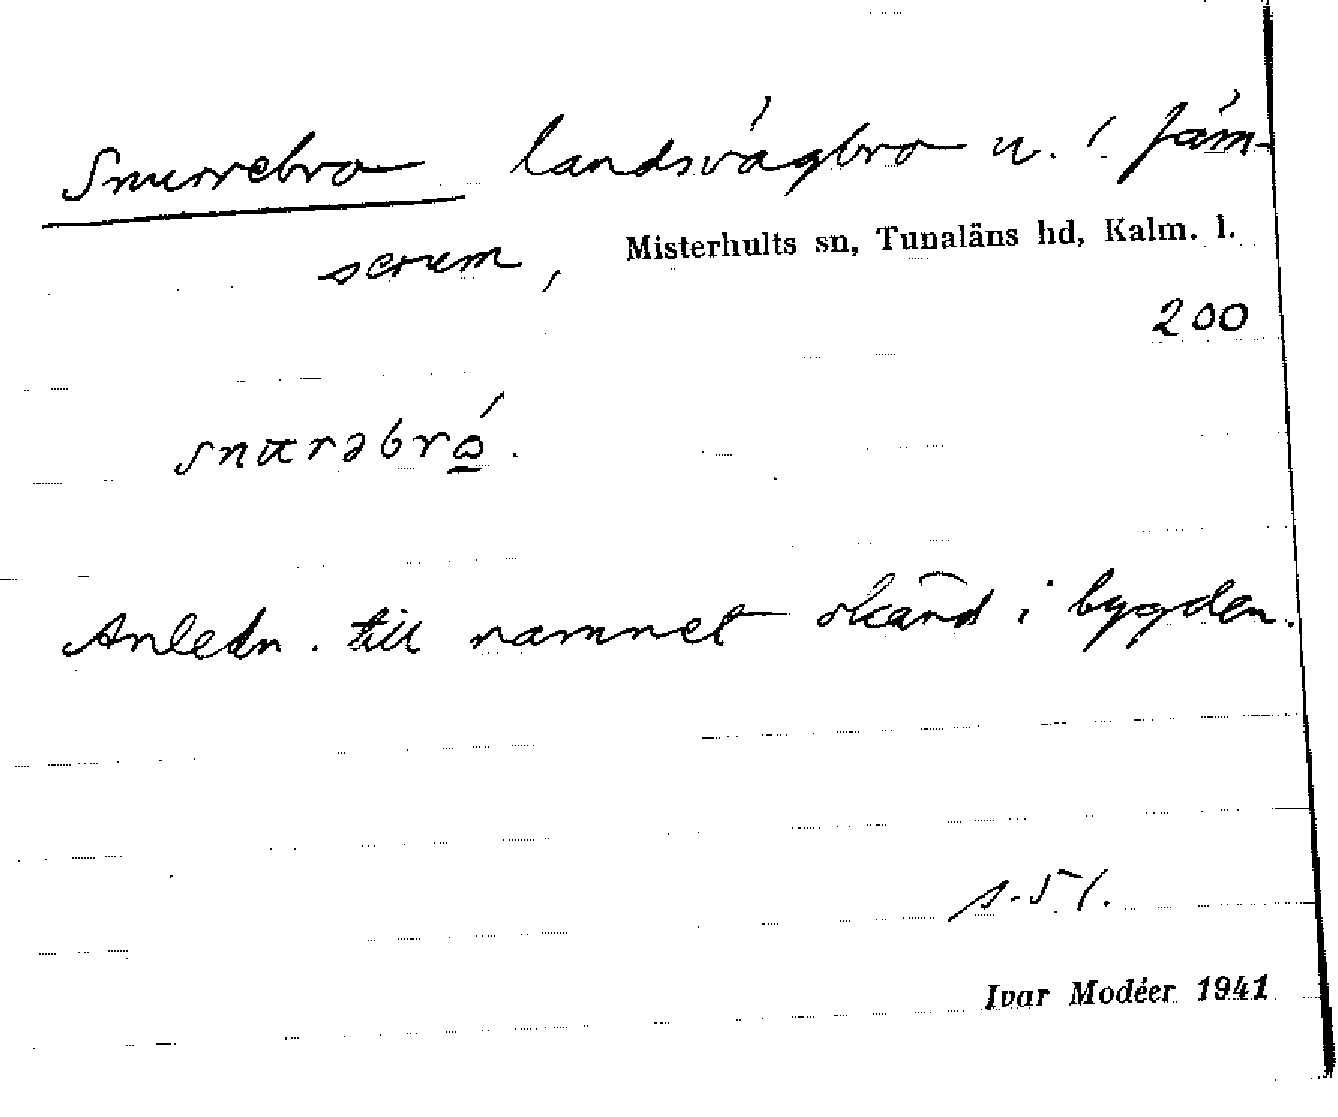 Snurrebro landsvägbro n. i. Jäm-
serum,
Misterhults sn, Tunaläns hd, Kalm. l.
200
Anledn. till namnet okänd i bygden.
s. 51.
Ivar Modéer 1941